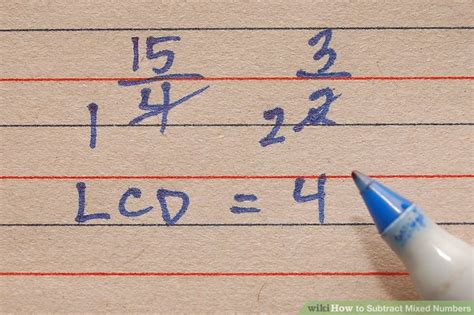 15 3
1 4 2 2
LCD = 4
wiki How to Subtract Mixed Numbers